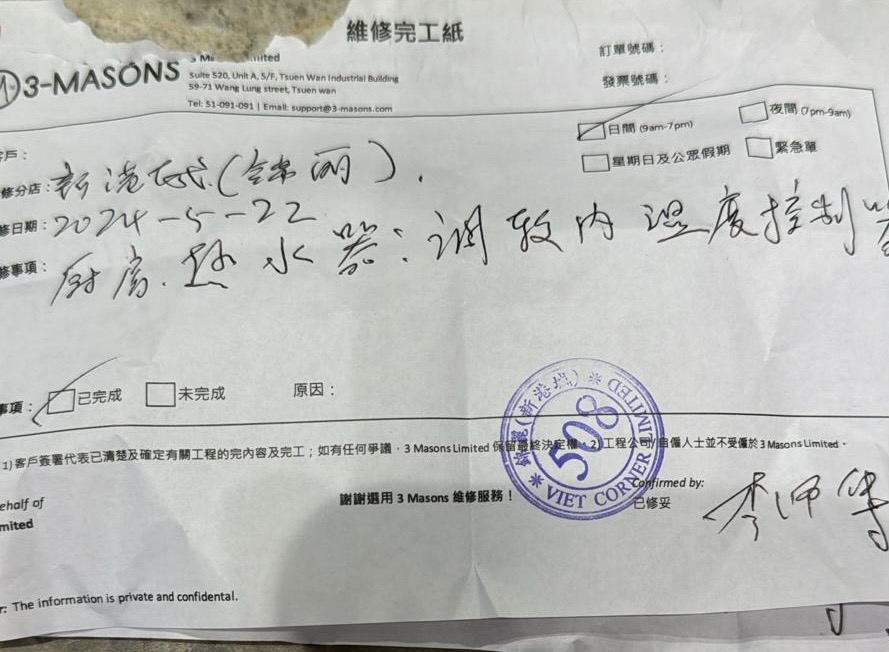 維修完工紙
3-MASONS
Suite 520, Unit A, 5/F, Tsuen Wan Industrial Building
59-71 Wang Lung street, Tsuen wan
Tel: 51-091-091 | Email: support@3-masons.com
訂單號碼：
發票號碼：
日間 (9am-7pm)
夜間 (7pm-9am)
星期日及公眾假期
緊急單
戶：
修分店：新港城
修日期：2024-5-22
修事項：厨房.热水器：调较内温度控制器
事項：
已完成
未完成
原因：
1) 客戶簽署代表已清楚及確定有關工程的完內容及完工；如有任何爭議，3 Masons Limited 保留最終決定權。2) 工程公司/自僱人士並不受僱於 3 Masons Limited。
(新港城)
508
VIET CORNER LIMITED
ehalf of
mited
謝謝選用 3 Masons 維修服務！
Confirmed by:
已修妥
r: The information is private and confidential.